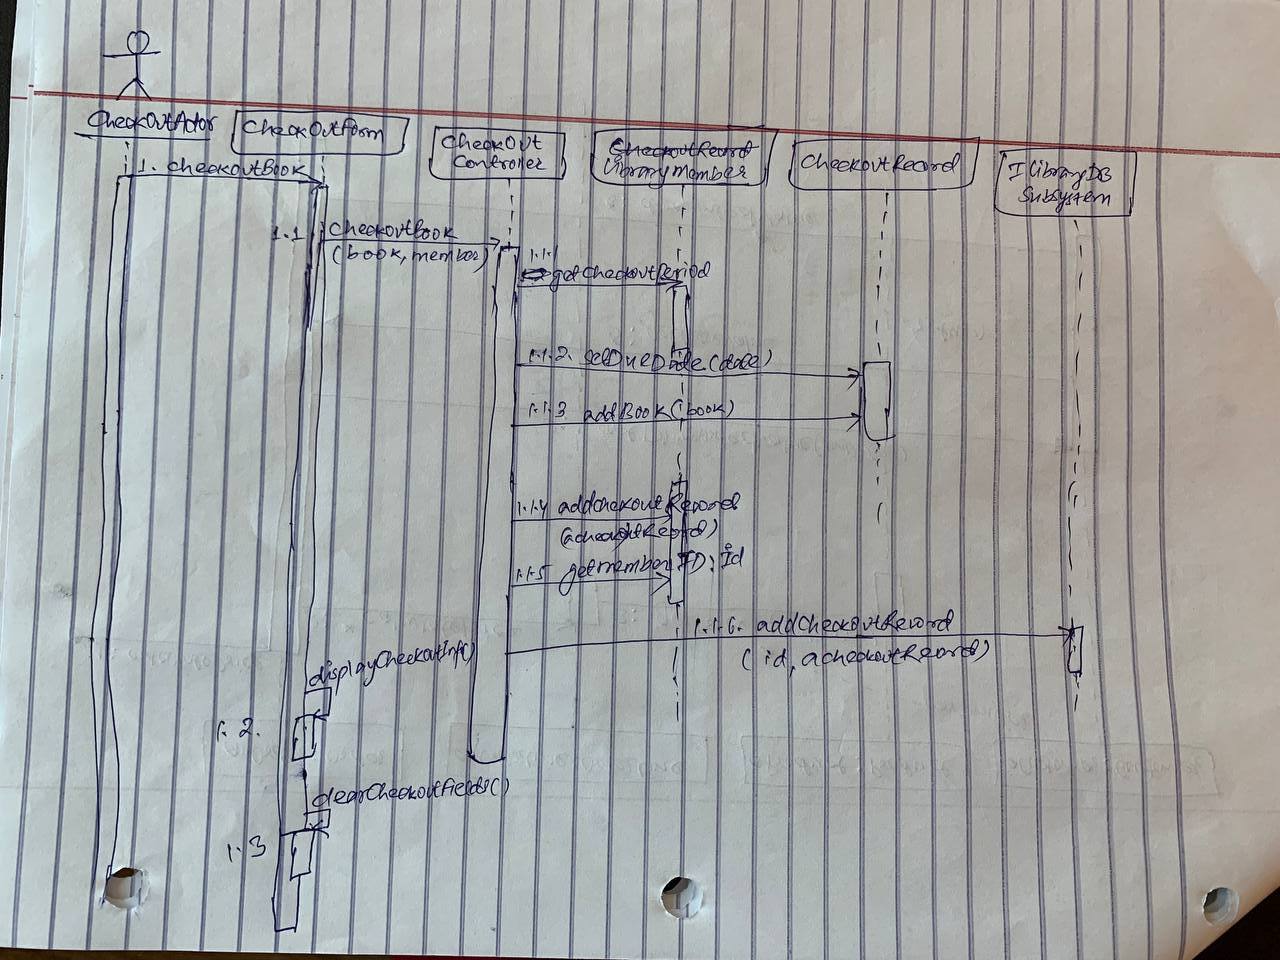 CheckOutActor
CheckOutForm
CheckOut
Controller
CheckoutRecord
LibraryMember
CheckoutRecord
ILibraryDB
Subsystem
1. checkoutBook
1.1 checkoutBook
(book, member)
1.1.1
getCheckoutPeriod
1.1.2. setDueDate(date)
1.1.3 addBook(book)
1.1.4 addCheckoutRecord
(acheckoutRecord)
1.1.5 getmemberID: Id
1.1.6. addCheckoutRecord
(id, acheckoutRecord)
displayCheckoutInfo()
1.2.
clearCheckoutFields()
1.3